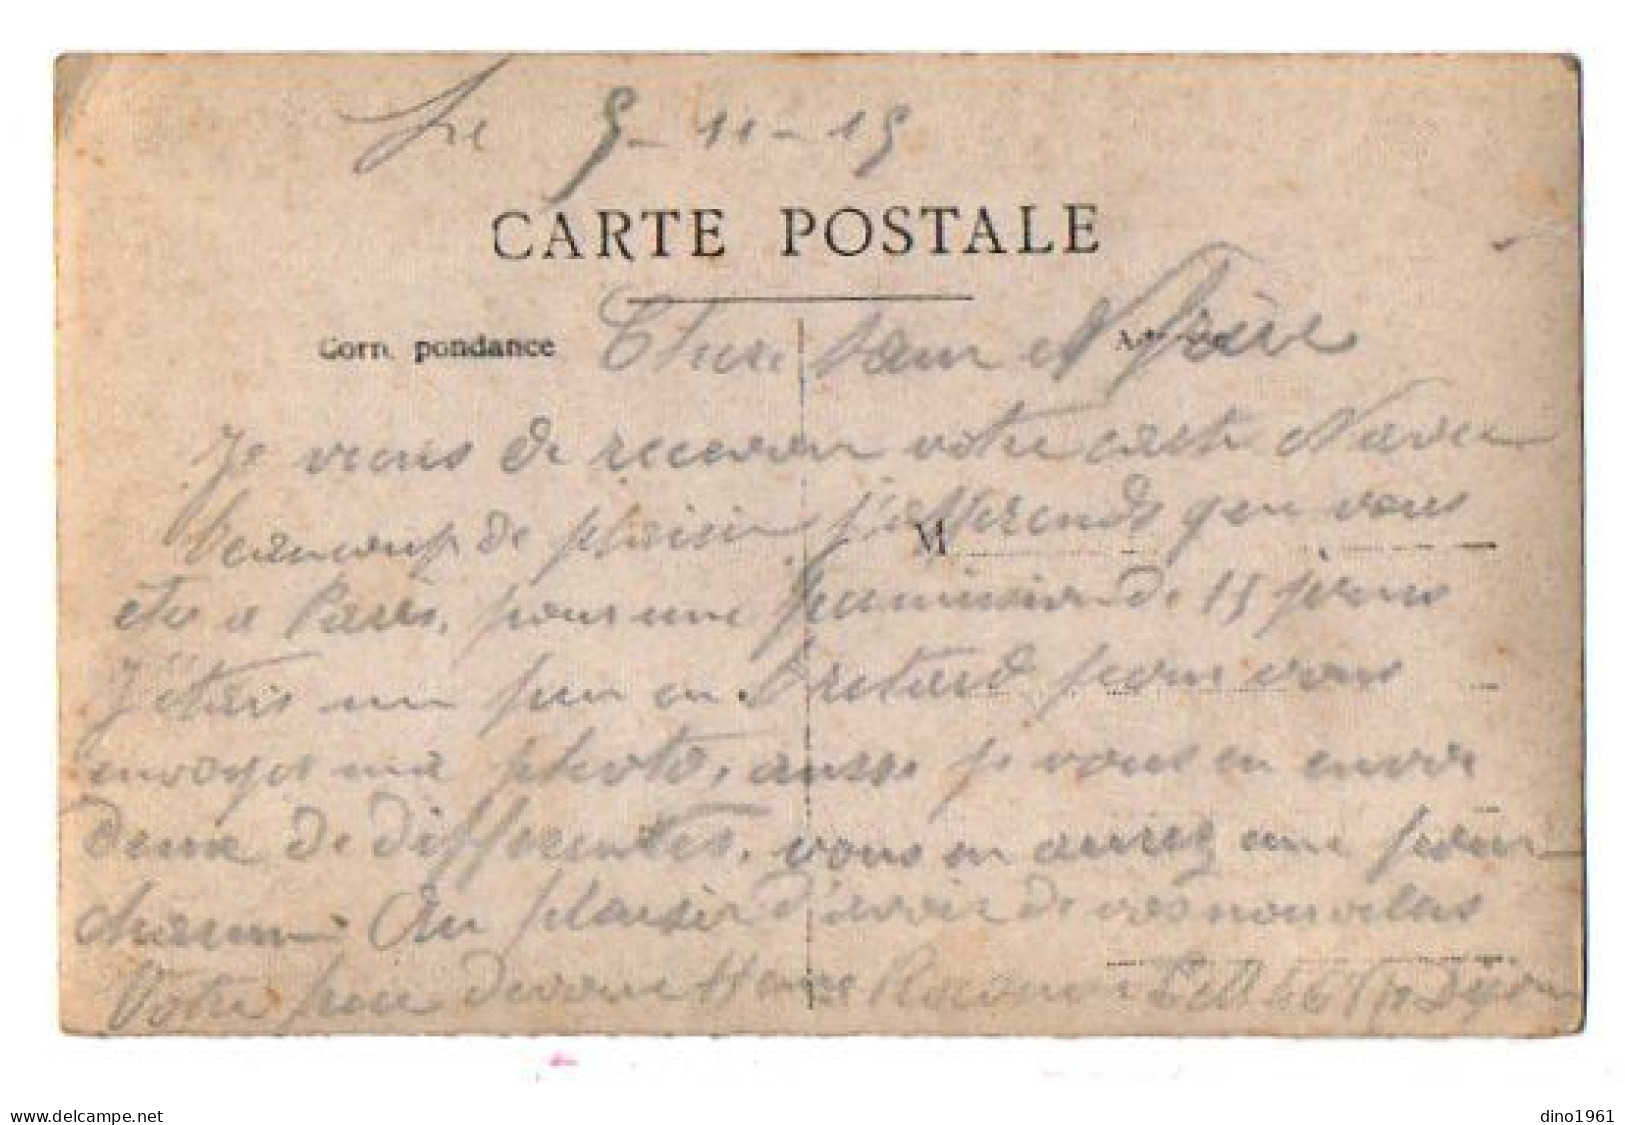 Le 5-11-15
CARTE POSTALE
Correspondance
Chere sœur et frère
Je viens de recevoir votre carte avec
beaucoup de plaisir j'apprends que vous
M
ete a Paris, pour une permission de 15 jours
J'étais un peu en retard pour vous
envoyer ma photo, aussi je vous en envoie
deux de differentes, vous en aurez une pour
chacun. Au plaisir d'avoir de vos nouvelles
Votre frère
www.delcampe.net
dino1961